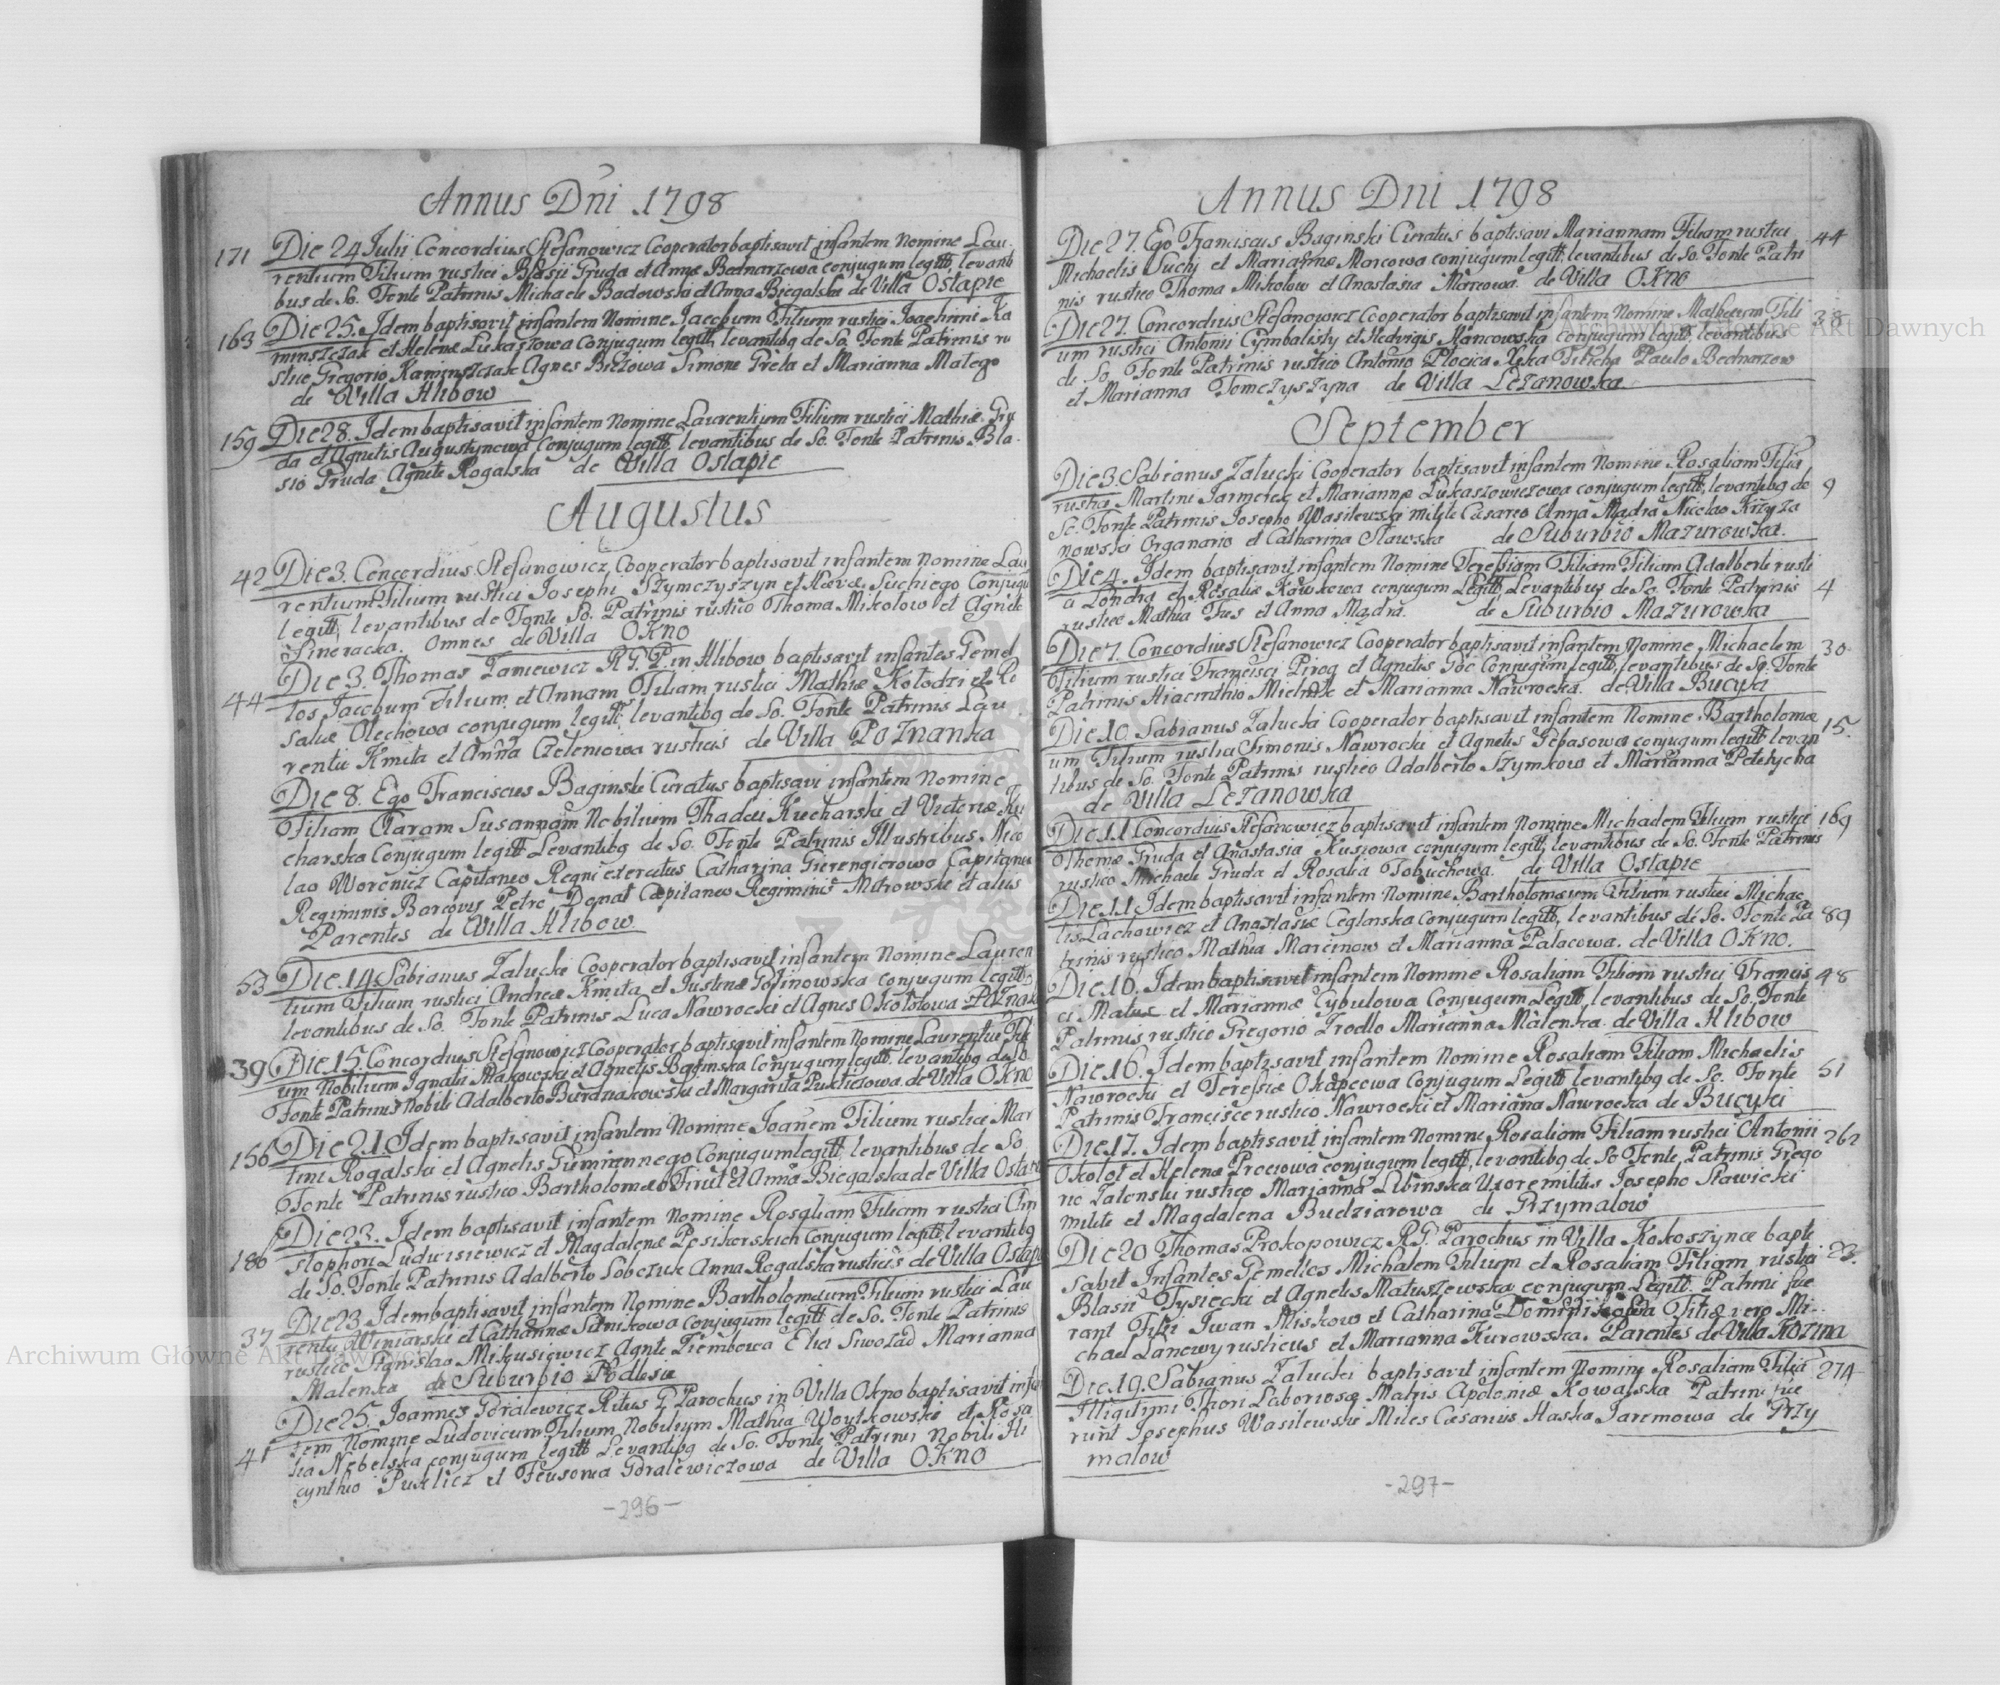 Annus Dni 1798
171 Die 24 Julii Concordius Stefanowicz Cooperator baptisavit infantem Nomine Lau
rentium Filium rustici Blasii Gruda et Annæ Bednarzowa conjugum legitt, levanti
bus de So. Fonte Patrinis Michaele Badowski et Anna Biegalska de Villa Ostapie
163 Die 25. Idem baptisavit infantem Nomine Jacobum Filium rustici Joachimi Ka
minszczak et Helenæ Lukaszowa Conjugum legitt, levantibq de So. Fonte Patrinis ru
stice Gregorio Kaminszczak Agnes Bieżowa Simone Greta et Marianna Malego
de Villa Hlibow
159 Die 28. Idem baptisavit infantem Nomine Laurentium Filium rustici Mathiæ Gru
da et Agnetis Augustynowa Conjugum legitt levantibus de So. Fonte Patrinis Bla
sio Gruda Agnete Rogalska de Villa Ostapie
Augustus
42 Die 3. Concordius Stefanowicz Cooperator baptisavit infantem Nomine Lau
rentium Filium rustici Josephi Szymczyszyn et Hævæ Suchiego Conjugu
legitt, levantibus de Fonte So. Patrinis rustico Thoma Mikolow et Agnete
Sineracka. Omnes de Villa OKno
44 Die 3. Thomas Laniewicz R.G.P. in Hlibow baptisavit infantes Gemel
los Jacobum Filium, et Annam Filiam rustici Mathiæ Kołodzi et Ro
saliæ Olechowa conjugum legitt, levantibq de So. Fonte Patrinis Lau
rentii Kmita et Anna Czeleniowa rusticis de Villa Poznanka
Die 8. Ego Franciscus Baginski Curatus baptisavi infantem Nomine
Filiam Claram Susannam Nobilium Thadei Kucharski et Victoriæ Ku
charska Conjugum legitt Levantibq de So. Fonte Patrinis Illustribus Nico
lao Worcnicz Capitaneo Regni exercitus Catharina Gierengierowa Capitanea
Regiminis Barcovis Petro Denat Capitaneo Regiminis Mitrowski et aliis
Parentes de Villa Hlibow.
53 Die 14. Sabianus Zalucki Cooperator baptisavit infantem Nomine Lauren
tium Filium rustici Andreæ Kmita et Justinæ Gosinowska conjugum legitt
levantibus de So. Fonte Patrinis Luca Nawrocki et Agnes Okolotowa Poznak
39 Die 15 Concordius Stefanowicz Cooperator baptisavit infantem Nomine Laurentiu Fili
um Nobilium Ignatii Makowski et Agnetis Baginska Conjugum legitt. levantibq de So
Fonte Patrinis Nobili Adalberto Burdniakowski et Margarita Pukliczowa. de Villa OKno
156 Die 21. Idem baptisavit infantem Nomine Joanem Filium rustici Mar
tini Rogalski et Agnetis Gumiannego Conjugum legitt, levantibus de So.
Fonte Patrinis rustico Bartholomæo Firut et Anna Biegalska de Villa Ostapi
186 Die 23. Idem baptisavit infantem Nomine Rosaliam Filiam rustici Chri
stophori Ludwisiewicz et Magdalenæ Posikorskich Conjugum legitt, levantibq
de So. Fonte Patrinis Adalberto Sobczuk Anna Rogalska rusticis de Villa Ostapi
37 Die 23. Idem baptisavit infantem Nomine Bartholomæum Filium rustici Lau
rentii Winiarski et Catharinæ Sitnikowa Conjugum legitt de So. Fonte Patrinis
rustico Stanislao Mikusiewicz Agnte Ziembowa Elici Siwozad Marianna
Malenka de Suburbio Podlesie
41 Die 25. Joannes Goralewicz Ritus G. Parochus in Villa Okno baptisavit infan
tem Nomine Ludovicum Filium Nobilium Mathia Woytkowski et Rosa
lia Nebelska conjugum legitt Levantibq de So. Fonte Patrini Nobili Hi
cynthio Puklicz et Feusonia Goralewiczowa de Villa OKno
-296-
Annus Dni 1798
Die 27. Ego Franciscus Baginski Curatus baptisavi Mariannam Filiam rustici 44
Michaelis Suchy et Mariannæ Marcowa conjugum legitt, levantibus de So. Fonte Patri
nis rustico Thoma Mikolow et Anastasia Marcowa. de Villa OKno
Die 27. Concordius Stefanowicz Cooperator baptisavit infantem Nomine Matheum Fili 38
um rustici Antonii Cymbalisty et Hedvigis Hancowska conjugum legitt, levantibus
de So. Fonte Patrinis rustico Antonio Plocica Tilicha Paulo Bednarzow
et Marianna Tomczyszyna de Villa Lezanowka
September
Die 3. Sabianus Zalucki Cooperator baptisavit infantem Nomine Rosaliam Filia
rustica Martini Jarmerek et Mariannæ Lukaszowiezowa conjugum legitt, levantibq de 9
So. Fonte Patrinis Josepho Wasilewski milite Cæsareo Anna Mądra Nicolao Krzyza
nowski Organario et Catharina Slawska de Suburbio Mazurowka.
Die 4. Idem baptisavit infantem Nomine Teressiam Filiam Filiam Adalberti rusti
ci Londra et Rosaliæ Kawkowa conjugum Legitt, Levantibus de So. Fonte Patrinis 4
rustice Mathia Tus et Anna Mądra. de Suburbio Mazurowka
Die 7. Concordius Stefanowicz Cooperator baptisavit infantem Nomine Michaelem 30
Filium rustici Francisci Pirog et Agnetis Goc Conjugum legitt, levantibus de So. Fonte
Patrinis Hiacinthio Mielnik et Marianna Nawrocka. de Villa Bucyki
Die 10. Sabianus Zalucki Cooperator baptisavit infantem Nomine Bartholomæ 15.
um Filium rustica Simonis Nawrocki et Agnetis Sebasowa conjugum legitt levan
tibus de So. Fonte Patrinis rustico Adalberto Szymkow et Marianna Petetycha
de Villa Lezanowka
Die 11 Concordius Stefanowicz baptisavit infantem Nomine Michaelem Filium rustici 169
Thomæ Gruda et Anastasia Kusiowa conjugum legitt, levantibus de So. Fonte Patrinis
rustico Michaele Gruda et Rosalia Tobuchowa. de Villa Ostapie
Die 11. Idem baptisavit infantem Nomine Bartholomæum Filium rustici Michae
lis Lachowicz et Anastasiæ Ceglarska Conjugum legitt, levantibus de So. Fonte Pa 89
trinis rustico Mathia Marcinow et Marianna Palacowa. de Villa OKno.
Die 16. Idem baptisavit infantem Nomine Rosaliam Filiam rustici Francis 48
ci Matus et Mariannæ Cybulowa Conjugum Legitt, levantibus de So. Fonte
Patrinis rustico Gregorio Zrodlo Marianna Malenka. de Villa Hlibow
Die 16. Idem baptisavit infantem Nomine Rosaliam Filiam Michaelis
Nawrocki et Teressiæ Okapecwa Conjugum Legitt levantibq de So. Fonte 51
Patrinis Francisce rustico Nawrocki et Mariana Nawrocka de Bucyki
Die 17. Idem baptisavit infantem Nomine Rosaliam Filiam rustici Antonii 262
Okolot et Helena Procowa conjugum legitt, levantibq de So Fonte, Patrinis Grego
rio Zalenski rustico Marianna Libinska Uxore militis Josepho Slawicki
milite et Magdalena Budziarowa de Przymalow
Die 20 Thomas Prokopowicz R.G. Parochus in Villa Kokoszynæ bapti
savit Infantes Gemelles Michalem Filium et Rosaliam Filiam rustici 23.
Blasii Tysiecki et Agnetis Matuszewska conjugum Legitt. Patrini fue
rant Filii Iwan Miskow et Catharina Filiæ vero Mi
chael Lanowy rusticus et Marianna Kurowska. Parentes de Villa Kozina
Die 19. Sabianus Zalucki baptisavit infantem Nomine Rosaliam Filia 274
Illigitimi Thori Laboriosæ Matris Apoloniæ Kowalska Patrini fue
runt Josephus Wasilewski Miles Cæsarius Haska Jaremowa de Przy
malow
-297-
Archiwum Główne Akt Dawnych
Archiwum Główne Akt Dawnych